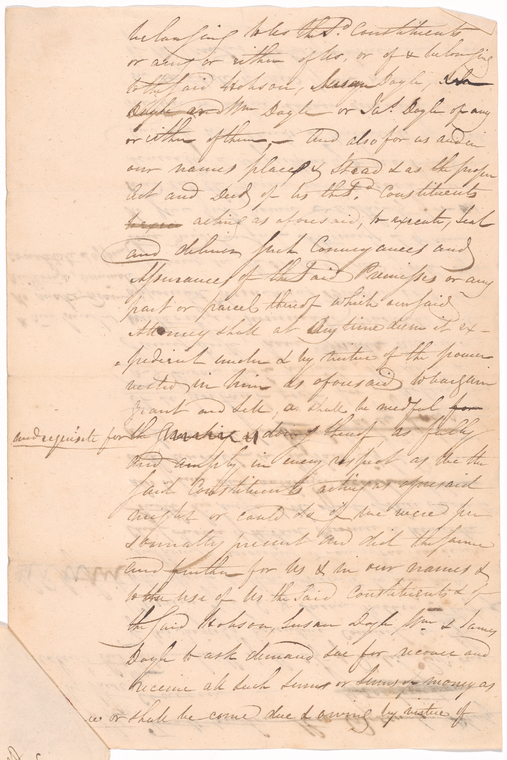 belonging to us the s.d Constituents
or any or either of us, or of & belonging
to the said Hobson, Susan Doyle,
Doyle and Wm Doyle or Jas. Doyle or any
or either of them — And also for us and in
our names place & Stead & as the proper
Act and Deed of us the s.d Constituents
acting as aforesaid, to execute, Seal
and deliver such Conveyances and
Assurances of the said Premises or any
part or parcel thereof which our said
Attorney shall at Any time deem it ex-
pedient under & by virtue of the power
vested in him as aforesaid to bargain
Grant and Sell, as shall be needful for
and requisite for the doing thereof, as fully
and amply in every respect as we the
said Constituents acting as aforesaid
might or could do if we were per
sonally present and did the same
and further for Us & in our names &
to the use of Us the Said Constituents & of
the Said Hobson, Susan Doyle, Wm. & James
Doyle to ask demand sue for recover and
receive all such sums or sums of money as
or shall be come due & owing by virtue of